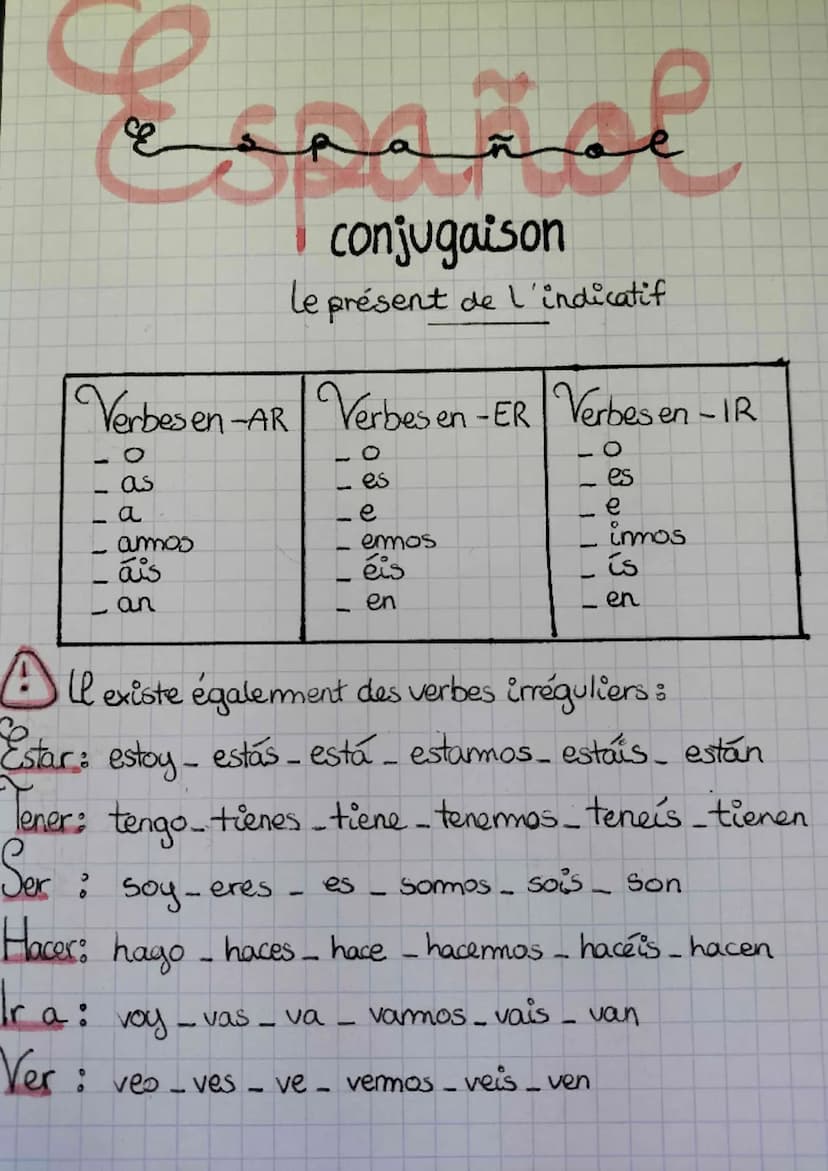 Español
Español
conjugaison
le présent de l'indicatif
Verbes en -AR
- o
- as
- a
- amos
- áis
- an
Verbes en -ER
- o
- es
- e
- emos
- éis
- en
Verbes en -IR
- o
- es
- e
- imos
- ís
- en
! Il existe également des verbes irréguliers :
Estar : estoy - estás - está - estamos - estáis - están
Tener : tengo - tienes - tiene - tenemos - teneís - tienen
Ser : soy - eres - es - somos - sois - son
Hacer : hago - haces - hace - hacemos - hacéis - hacen
Ir a : voy - vas - va - vamos - vais - van
Ver : veo - ves - ve - vemos - veis - ven